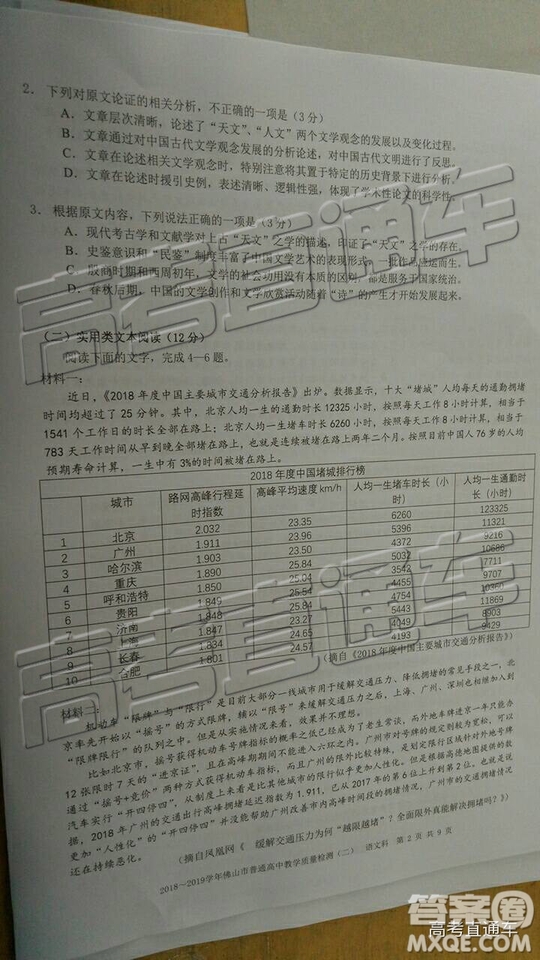 2. 下列对原文论证的相关分析，不正确的一项是（3分）
A. 文章层次清晰，论述了“天文”、“人文”两个文学观念的发展以及变化过程。
B. 文章通过对中国古代文学观念发展的分析论述，对中国古代文明进行了反思。
C. 文章在论述相关文学观念时，特别注意将其置于特定的历史背景下进行分析。
D. 文章在论述时援引史例，表述清晰、逻辑性强，体现了学术性论文的科学性。
3. 根据原文内容，下列说法正确的一项是（3分）
A. 现代考古学和文献学对上古“天文”之学的描述，印证了“天文”之学的存在。
B. 史鉴意识和“民鉴”制度丰富了中国文学艺术的表现形式，一批作品应运而生。
C. 殷商时期和西周初年，文学的社会功用没有本质的区别，都是服务于国家统治。
D. 春秋后期，中国的文学创作和文学欣赏活动随着“诗”的产生才开始发展起来。
（二）实用类文本阅读（12分）
阅读下面的文字，完成4—6题。
材料一：
近日，《2018年度中国主要城市交通分析报告》出炉。数据显示，十大“堵城”人均每天的通勤拥堵
时间均超过了25分钟。其中，北京人均一生的通勤时长12325小时，按照每天工作8小时计算，相当于
1541个工作日的时长全部在路上；北京人均一生堵车时长6260小时，按照每天工作8小时计算，相当于
783天工作时间从早到晚全部堵在路上，也就是连续被堵在路上两年二个月。按照目前中国人76岁的人均
预期寿命计算，一生中有3%的时间被堵在路上。
2018年度中国堵城排行榜
城市 路网高峰行程延时指数 高峰平均速度km/h 人均一生堵车时长（小时） 人均一生通勤时长（小时）
1 北京 2.032 23.35 6260 123325
2 广州 1.911 23.96 5396 11321
3 哈尔滨 1.903 23.50 4372 9216
4 重庆 1.890 25.84 5032 10686
5 呼和浩特 1.850 25.04 3542 7711
6 贵阳 1.849 25.54 4455 9707
7 济南 1.848 25.84 4754 10360
8 上海 1.847 23.27 5449 11869
9 长春 1.834 24.65 4045 8903
10 合肥 1.801 24.57 4193 9429
（摘自《2018年度中国主要城市交通分析报告》）
材料二：
机动车“限牌”与“限行”是目前大部分一线城市用于缓解交通压力、降低拥堵的常见手段之一，北
京率先开始以“摇号”的方式限牌，辅以“限号”来缓解交通压力之后，上海、广州、深圳也相继加入到
“限牌限行”的队列之中。但是从实施情况来看，效果并不理想。
比如北京市，摇号获得机动车号牌指标的概率之低已经成为了老生常谈，而外地车牌进京一年只能办
12张限时7天的“进京证”，且在高峰期期间不能进入六环之内。广州市对号牌的规定则较为宽松，可以
通过“摇号+竞价”两种方式获得机动车指标，而且广州的限外比较特殊，是划定限行区域针对外地牌
汽车实行“开四停四”，从制度上来看是比其他城市的限行似乎更加人性化。但是根据高德地图提供的数
据，2018年广州的交通出行高峰拥堵延迟指数为1.911，已从2017年的第6位上升到第2位，也就是说
更加“人性化”的“开四停四”并没能帮助广州改善市内高峰时间段的拥堵情况，广州市的交通拥堵情况
还在持续恶化。
（摘自凤凰网《 缓解交通压力为何“越限越堵”？全面限外真能解决拥堵吗？》）
2018～2019学年佛山市普通高中教学质量检测（二） 语文科 第2页共9页
高考直通车
高考直通车
答案圈
高考直通车
MXQE.COM